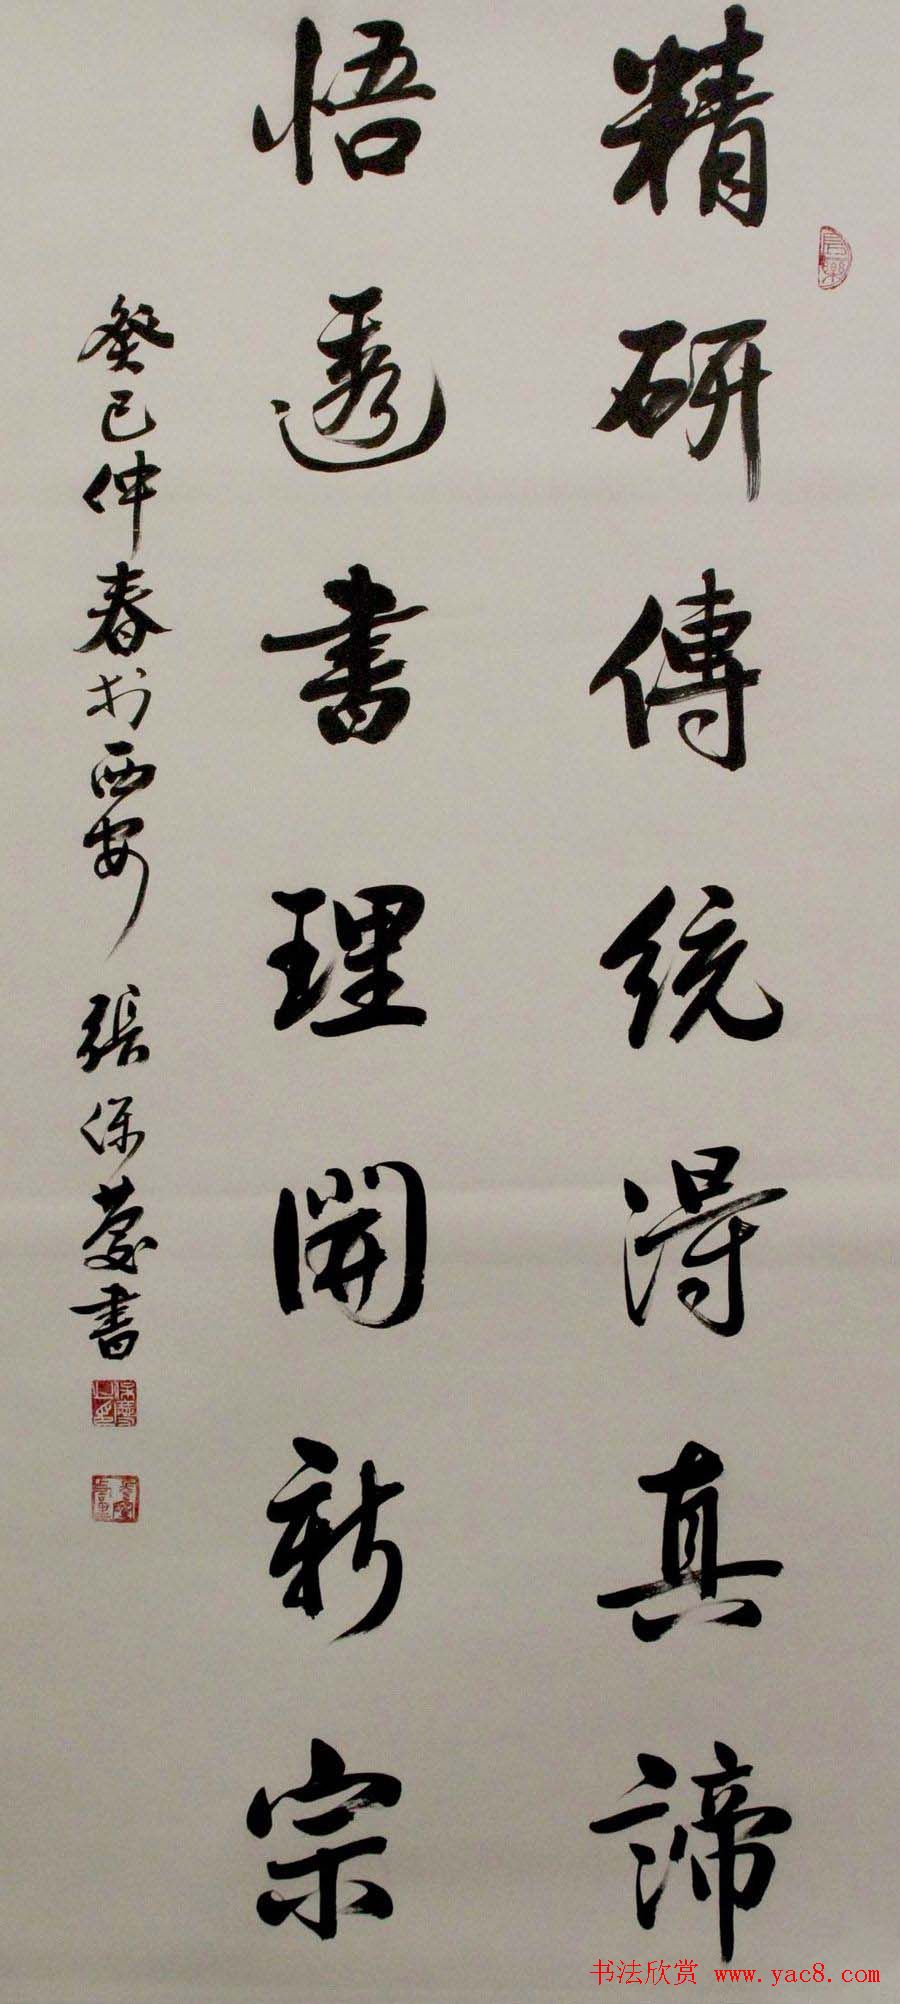 精研傳統得真諦
悟透書理開新宗
癸巳仲春於西安 張保慶書
书法欣赏 www.yac8.com